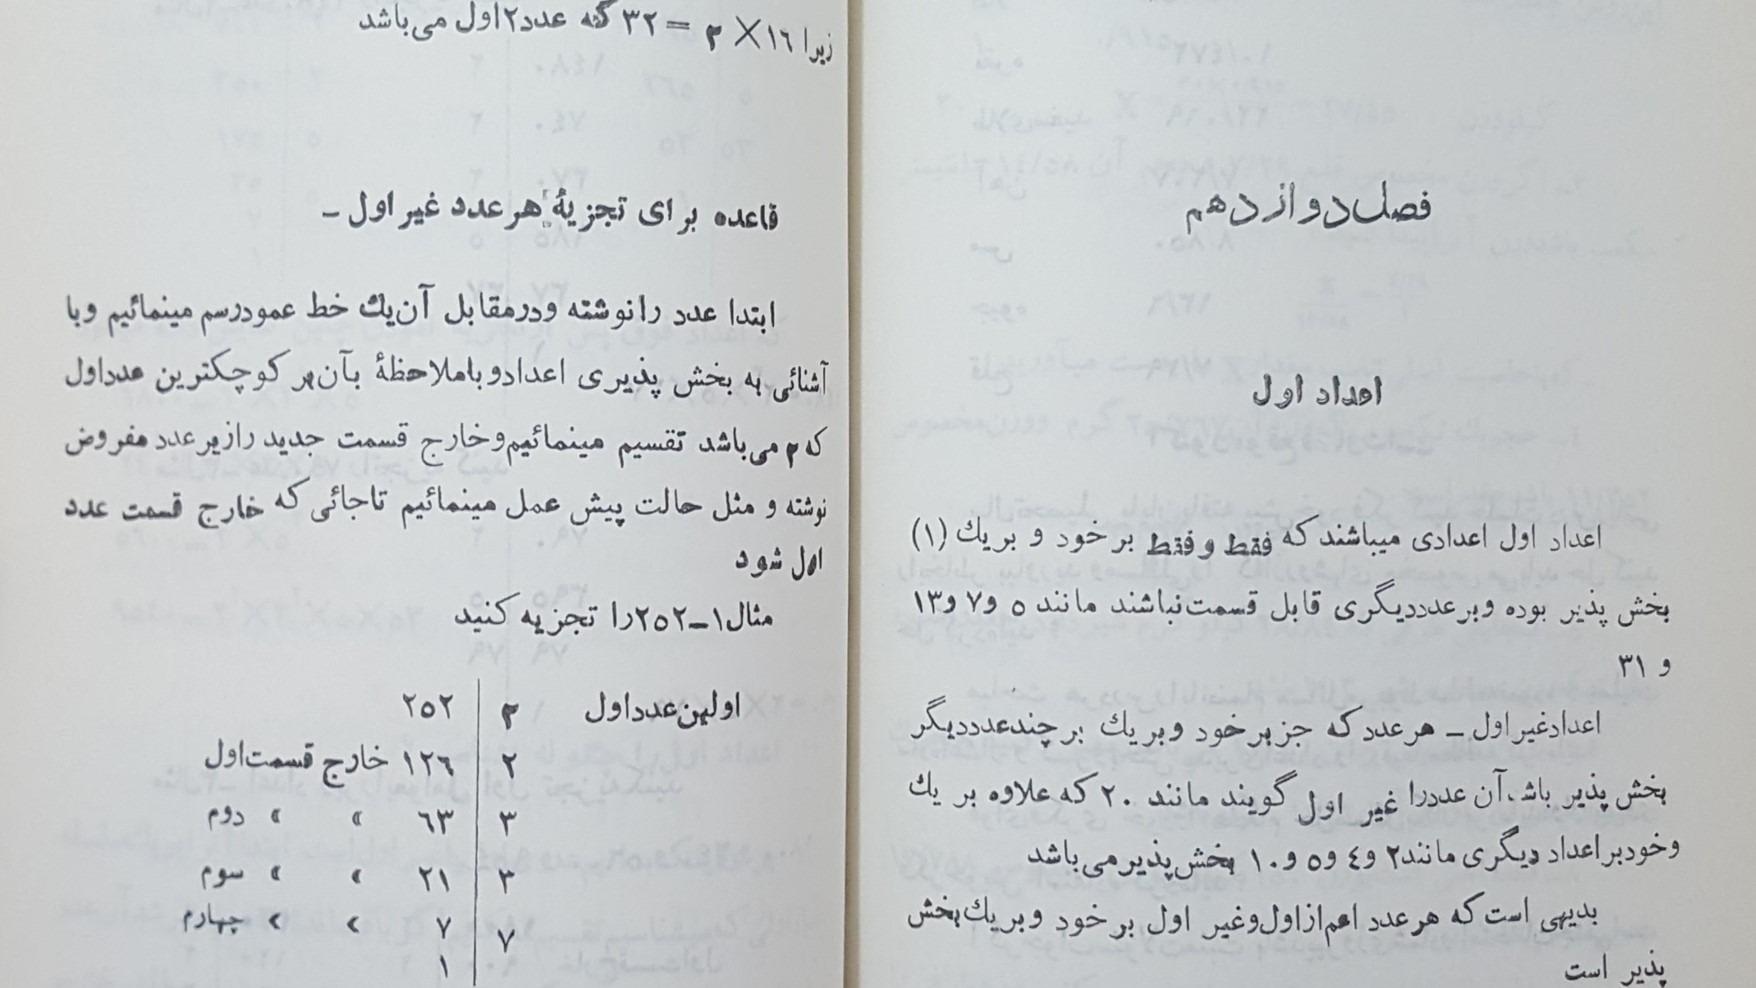 فصل دوازدهم
اعداد اول
اعداد اول اعدادی میباشند که فقط و فقط بر خود و بر یك (۱)
بخش پذیر بوده و بر عدد دیگری قابل قسمت نباشند مانند ۵ و ۷ و ۱۳
و ۳۱
اعداد غیر اول ـ هر عدد که جز بر خود و بر یك بر چند عدد دیگر
بخش پذیر باشد، آن عدد را غیر اول گویند مانند ۲۰ که علاوه بر یك
و خود بر اعداد دیگری مانند ۲ و ٤ و ۵ و ۱۰ بخش پذیر می باشد
بدیهی است که هر عدد اعم از اول و غیر اول بر خود و بر یك بخش
پذیر است
زیرا ۱٦ × ۲ = ۳۲ که عدد ۲ اول می باشد
قاعده برای تجزیهٔ هر عدد غیر اول ـ
ابتدا عدد را نوشته و در مقابل آن یك خط عمود رسم مینمائیم و با
آشنائی به بخش پذیری اعداد و با ملاحظهٔ بآن بر کوچکترین عدد اول
که ۲ می باشد تقسیم مینمائیم و خارج قسمت جدید را زیر عدد مفروض
نوشته و مثل حالت پیش عمل مینمائیم تا جائی که خارج قسمت عدد
اول شود
مثال ۱ ـ ۲۵۲ را تجزیه کنید
اولین عدد اول ۲ | ۲۵۲
۲ | ۱۲٦ خارج قسمت اول
۳ | ٦۳ » » دوم
۳ | ۲۱ » » سوم
۷ | ۷ » » چهارم
۱